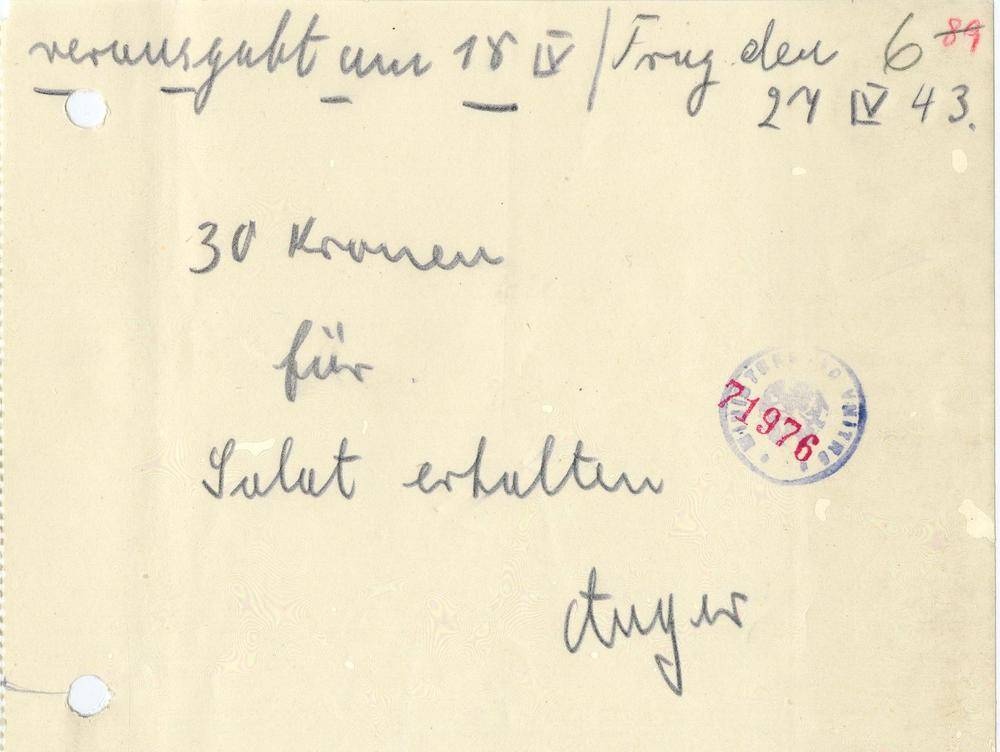 verausgabt am 18 IV / Prag den 6 89
27 IV 43.
30 Kronen
für
Salat erhalten
Anger
71976